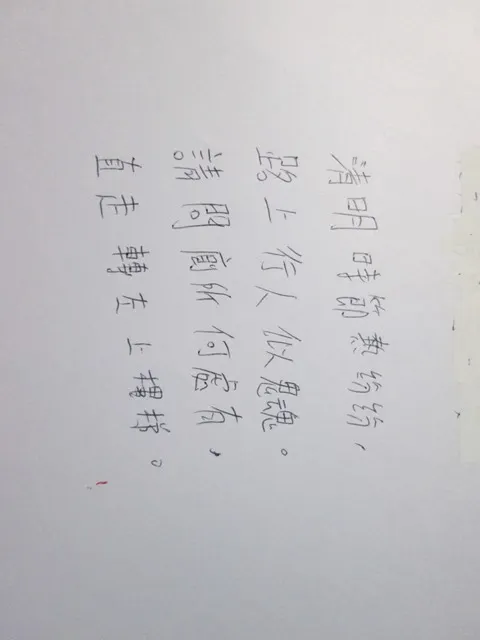 清明時節热紛紛，
路上行人似鬼魂。
請問廁所何處有，
直走轉左上樓梯。